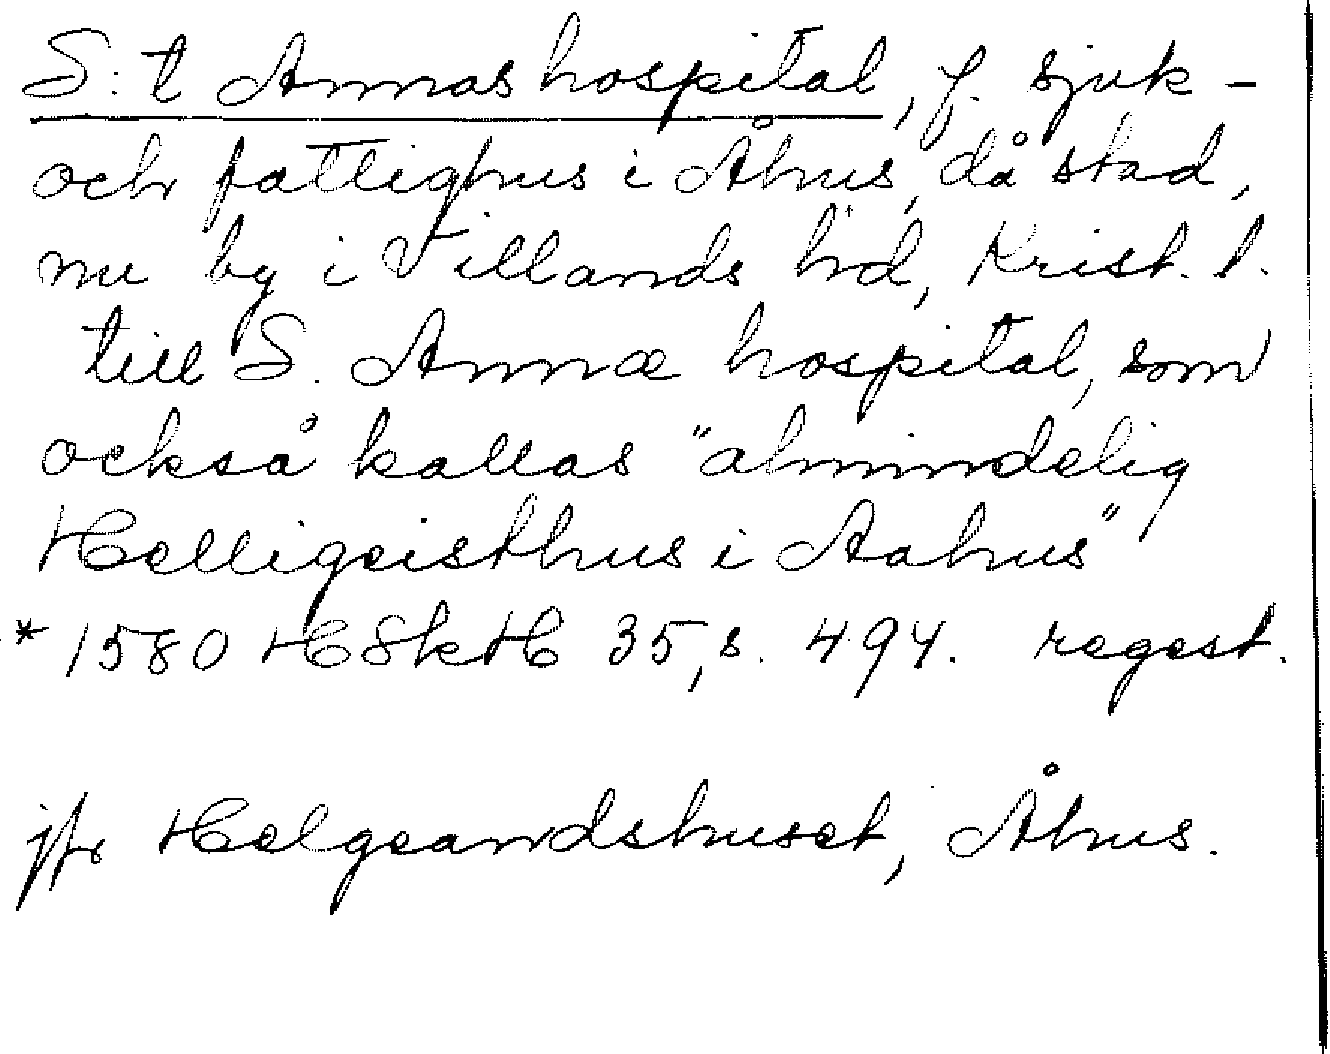 S:t Annas hospital, f. sjuk-
och fattighus i Åhus, då stad,
nu by i Villands hd, Krist. l.
till S. Annæ hospital, som
också kallas "almindelig
Helligeisthus i Aahus"
* 1580 HSkH 35, s. 494. regest.
jfr Helgeandshuset, Åhus.